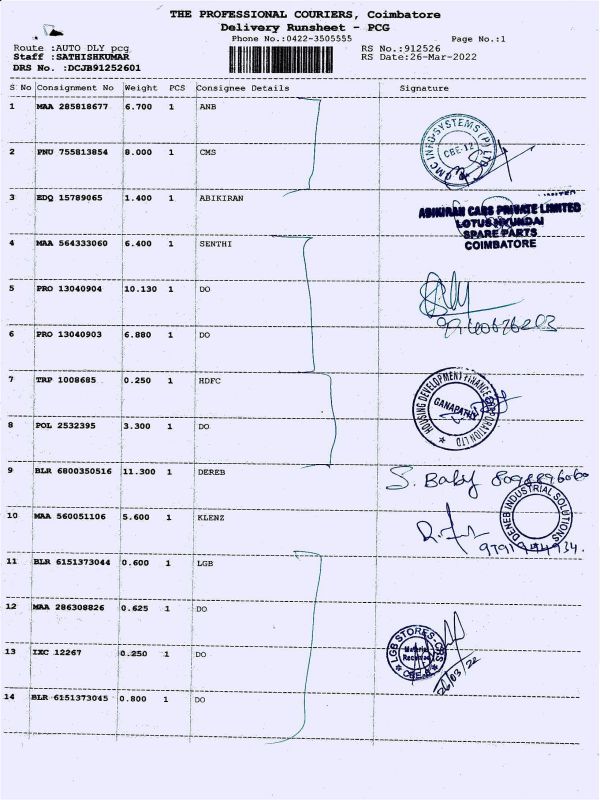 THE PROFESSIONAL COURIERS, Coimbatore
Delivery Runsheet - PCG
Phone No.:0422-3505555 Page No.:1
Route :AUTO DLY pcg RS No.:912526
Staff :SATHISHKUMAR RS Date:26-Mar-2022
DRS No. :DCJB91252601
S No Consignment No Weight PCS Consignee Details Signature
1 MAA 285818677 6.700 1 ANB
2 PNU 755813854 8.000 1 CMS
INFO-SYSTEMS (P) LTD
CBE-12
3 EDQ 15789065 1.400 1 ABIKIRAN
ABIKIRAN CARS PRIVATE LIMITED
LOTUS HYUNDAI
SPARE PARTS
COIMBATORE
4 MAA 564333060 6.400 1 SENTHI
5 PRO 13040904 10.130 1 DO
6 PRO 13040903 6.880 1 DO
7 TRP 1008685 0.250 1 HDFC
HOUSING DEVELOPMENT FINANCE CORPORATION LTD
GANAPATHY
8 POL 2532395 3.300 1 DO
9 BLR 6800350516 11.300 1 DEREB
S. Baby
10 MAA 560051106 5.600 1 KLENZ
DENEB INDUSTRIAL SOLUTIONS
11 BLR 6151373044 0.600 1 LGB
12 MAA 286308826 0.625 1 DO
13 IXC 12267 0.250 1 DO
LGB STORES-CBS
Material
Received
CBE-6
26/03/22
14 BLR 6151373045 0.800 1 DO